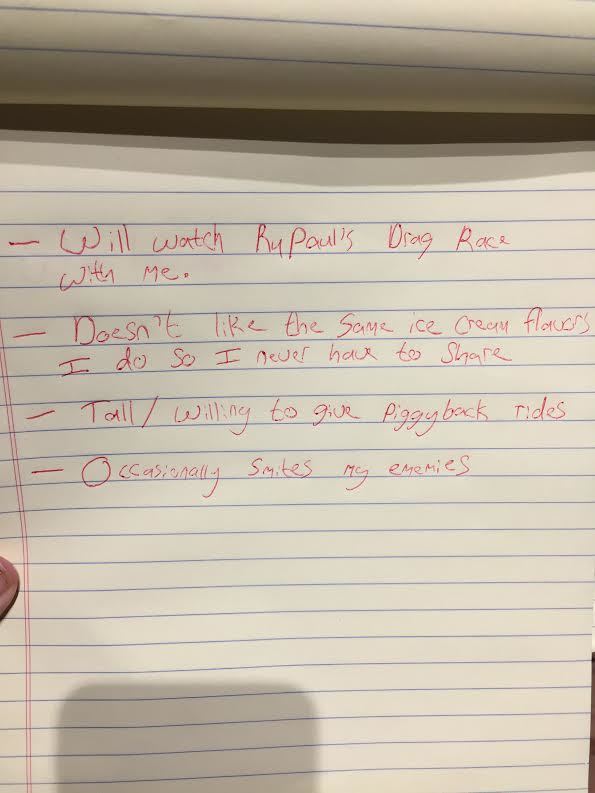 — Will watch RuPaul's Drag Race
with me.
— Doesn't like the same ice cream flavors
I do so I never have to share
— Tall/willing to give piggyback rides
— Occasionally smites my enemies